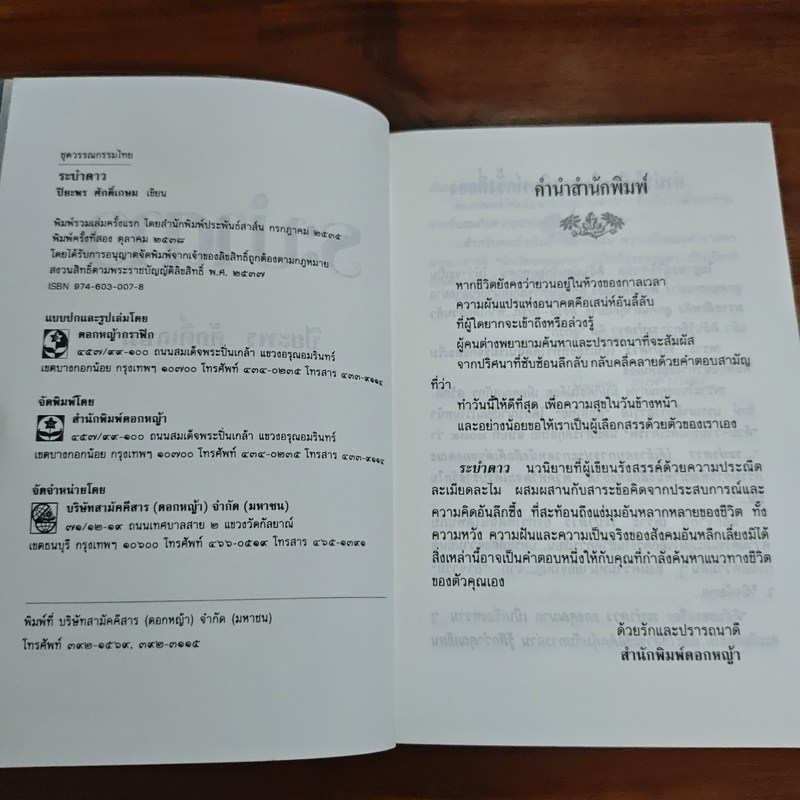 ชุดวรรณกรรมไทย
ระบำดาว
ปิยะพร ศักดิ์เกษม เขียน
พิมพ์รวมเล่มครั้งแรก โดยสำนักพิมพ์ประพันธ์สาส์น กรกฎาคม ๒๕๓๕
พิมพ์ครั้งที่สอง ตุลาคม ๒๕๓๘
โดยได้รับการอนุญาตจัดพิมพ์จากเจ้าของลิขสิทธิ์ถูกต้องตามกฎหมาย
สงวนสิทธิ์ตามพระราชบัญญัติลิขสิทธิ์ พ.ศ. ๒๕๓๗
ISBN 974-603-007-8
แบบปกและรูปเล่มโดย
ดอกหญ้ากราฟิก
๔๕๗/๙๙-๑๐๐ ถนนสมเด็จพระปิ่นเกล้า แขวงอรุณอมรินทร์
เขตบางกอกน้อย กรุงเทพฯ ๑๐๗๐๐ โทรศัพท์ ๔๓๔-๐๒๓๕ โทรสาร ๔๓๓-๙๑๑๔
จัดพิมพ์โดย
สำนักพิมพ์ดอกหญ้า
๔๕๗/๙๙-๑๐๐ ถนนสมเด็จพระปิ่นเกล้า แขวงอรุณอมรินทร์
เขตบางกอกน้อย กรุงเทพฯ ๑๐๗๐๐ โทรศัพท์ ๔๓๔-๐๒๓๕ โทรสาร ๔๓๓-๙๑๑๔
จัดจำหน่ายโดย
บริษัทสามัคคีสาร (ดอกหญ้า) จำกัด (มหาชน)
๗๑/๑๒-๑๙ ถนนเทศบาลสาย ๒ แขวงวัดกัลยาณ์
เขตธนบุรี กรุงเทพฯ ๑๐๖๐๐ โทรศัพท์ ๔๖๖-๐๕๑๙ โทรสาร ๔๖๕-๑๓๙๑
พิมพ์ที่ บริษัทสามัคคีสาร (ดอกหญ้า) จำกัด (มหาชน)
โทรศัพท์ ๓๙๒-๑๕๖๙, ๓๙๒-๓๑๑๕
คำนำสำนักพิมพ์
หากชีวิตยังคงว่ายวนอยู่ในห้วงของกาลเวลา
ความผันแปรแห่งอนาคตคือเสน่ห์อันลี้ลับ
ที่ผู้ใดยากจะเข้าถึงหรือล่วงรู้
ผู้คนต่างพยายามค้นหาและปรารถนาที่จะสัมผัส
จากปริศนาที่ซับซ้อนลึกลับ กลับคลี่คลายด้วยคำตอบสามัญ
ที่ว่า
ทำวันนี้ให้ดีที่สุด เพื่อความสุขในวันข้างหน้า
และอย่างน้อยขอให้เราเป็นผู้เลือกสรรด้วยตัวของเราเอง
ระบำดาว นวนิยายที่ผู้เขียนรังสรรค์ด้วยความประณีต
ละเมียดละไม ผสมผสานกับสาระข้อคิดจากประสบการณ์และ
ความคิดอันลึกซึ้ง ที่สะท้อนถึงแง่มุมอันหลากหลายของชีวิต ทั้ง
ความหวัง ความฝันและความเป็นจริงของสังคมอันหลีกเลี่ยงมิได้
สิ่งเหล่านี้อาจเป็นคำตอบหนึ่งให้กับคุณที่กำลังค้นหาแนวทางชีวิต
ของตัวคุณเอง
ด้วยรักและปรารถนาดี
สำนักพิมพ์ดอกหญ้า